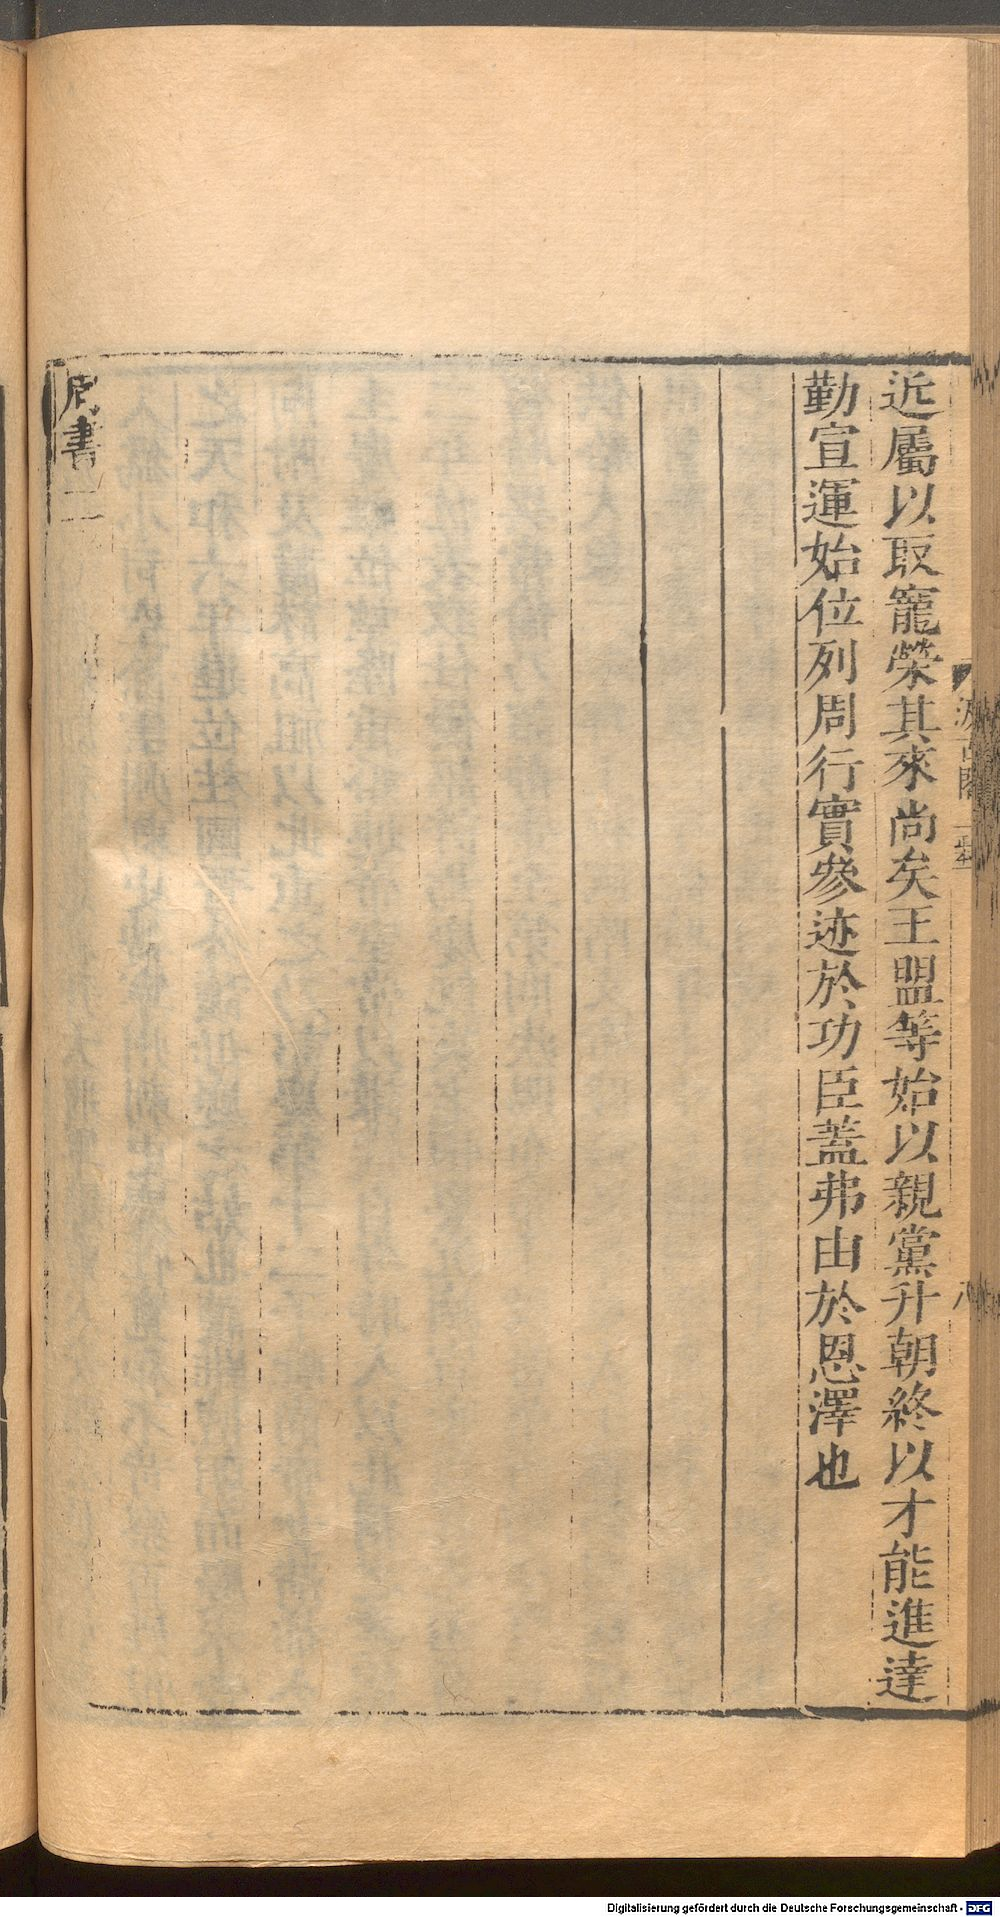 近屬以取寵榮其來尚矣王盟等始以親黨升朝終以才能進達
勤宣運始位列周行實參迹於功臣蓋弗由於恩澤也
周書二
汲古閣
八
Digitalisierung gefördert durch die Deutsche Forschungsgemeinschaft - DFG